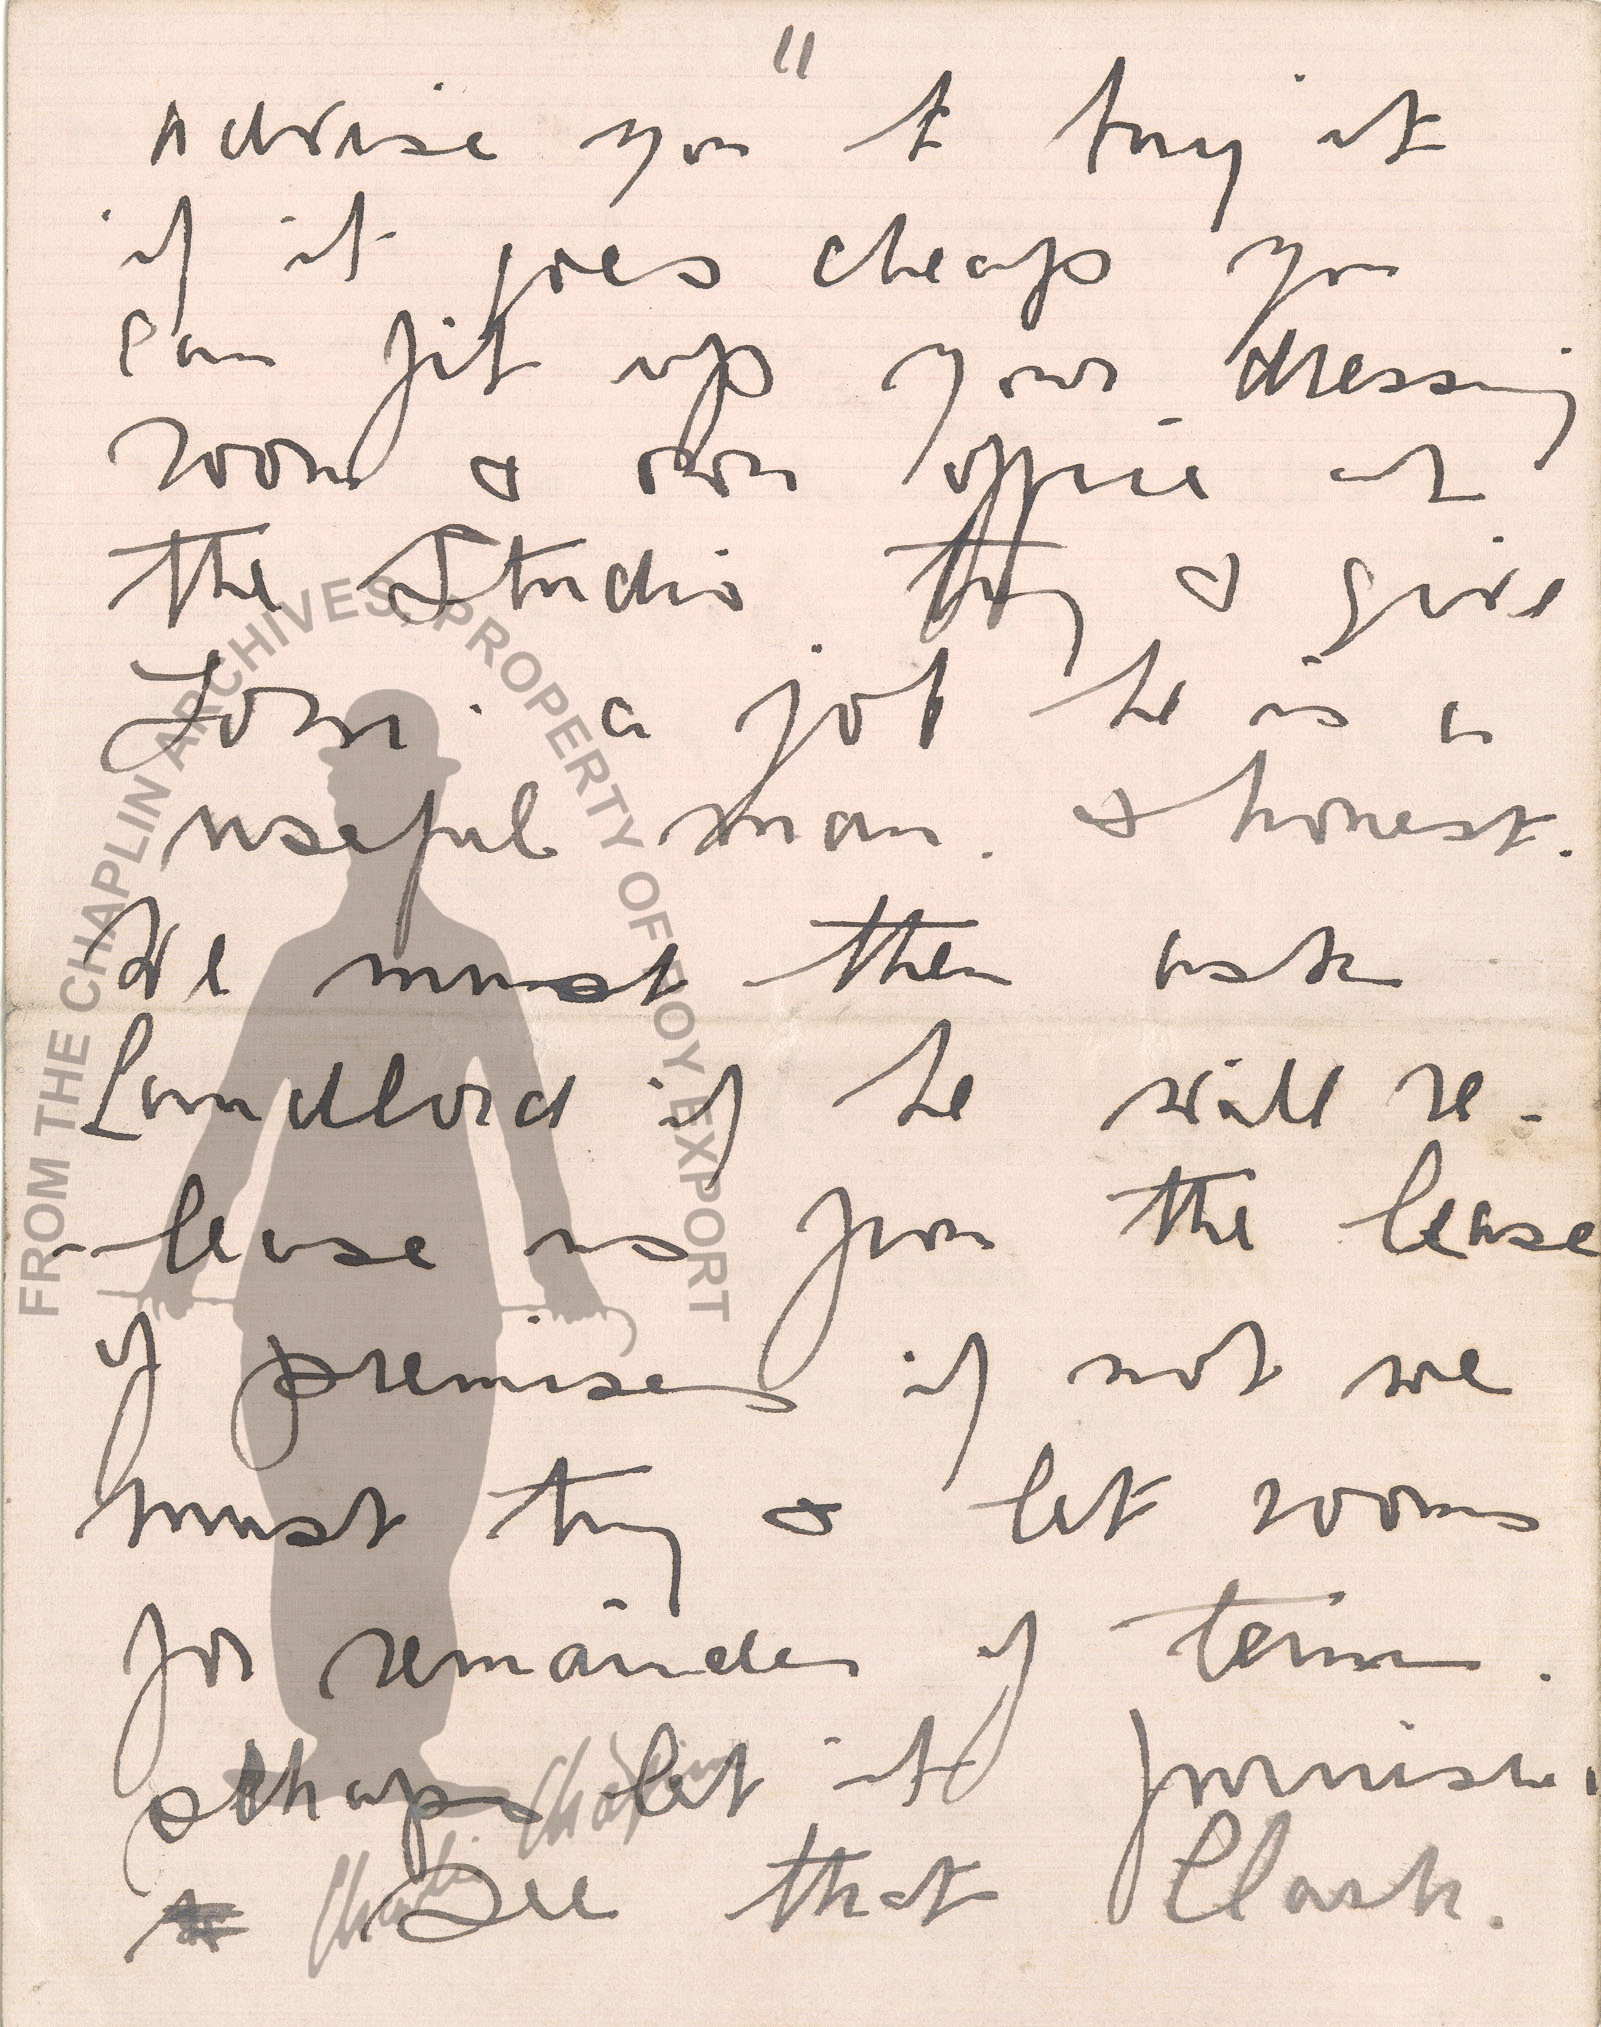 11
advise you to buy it
if it goes cheap you
can fit up your dressing
room & own office at
the Studio try & give
Tom a job he is a
useful man. & honest.
We must then ask
Landlord if he will re-
-lease us from the lease
of premises if not we
must try & let rooms
for remainder of term.
perhaps let it furnished
See that Clark.
FROM THE CHAPLIN ARCHIVES, PROPERTY OF ROY EXPORT
Charlie Chaplin